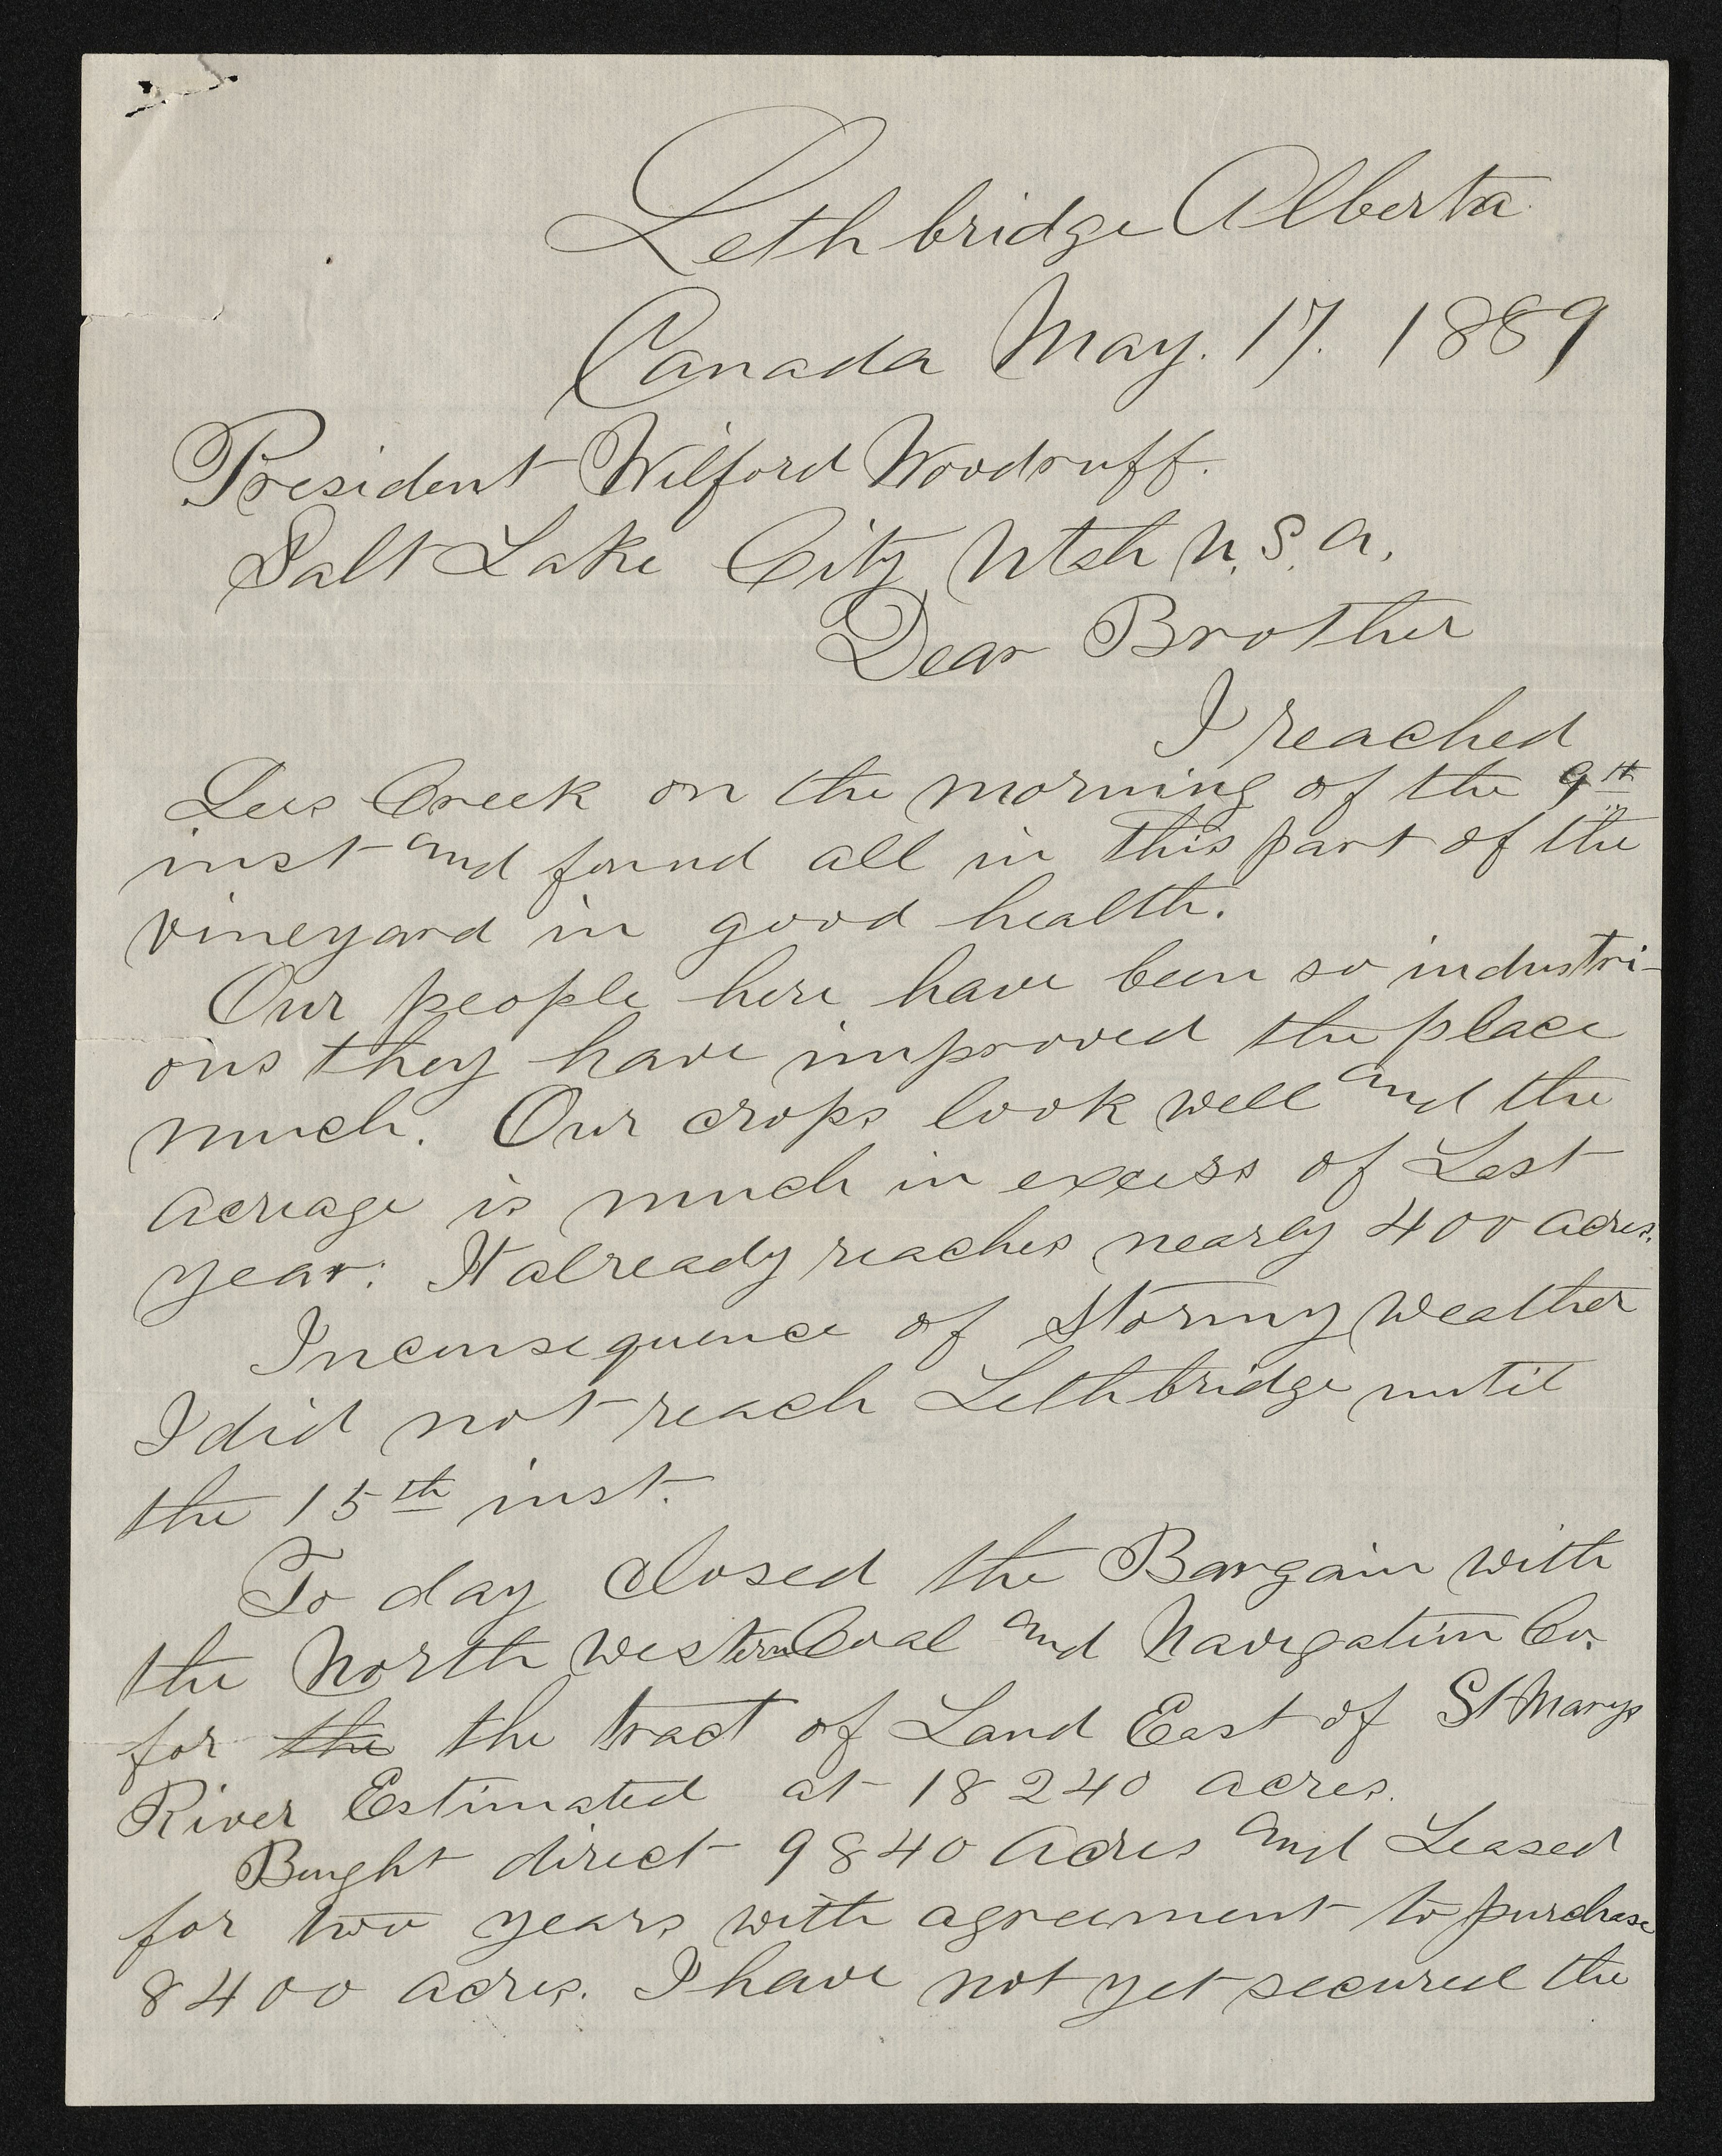 Lethbridge Alberta
Canada May. 17. 1889
President Wilford Woodruff.
Salt Lake City Utah U.S.A.
Dear Brother
I reached
Lees Creek on the morning of the 9th
inst and found all in this part of the
vineyard in good health.
Our people here have been so industri-
ous they have improved the place
much. Our crops look well and the
acreage is much in excess of Last
year. It already reaches nearly 400 acres.
Inconsequence of Stormy Weather
I did not reach Lethbridge until
the 15th inst.
To day closed the Bargain with
the North Western Coal and Navigation Co.
for the the tract of Land East of St Marys
River Estimated at 18240 acres.
Bought direct 9840 Acres and Leased
for two years with agreement to purchase
8400 acres. I have not yet secured the